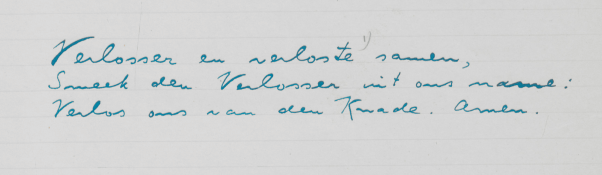 Verlosser en verloste ¹) samen,
Smeek den Verlosser uit ons name:
Verlos ons van den Kwade. Amen.